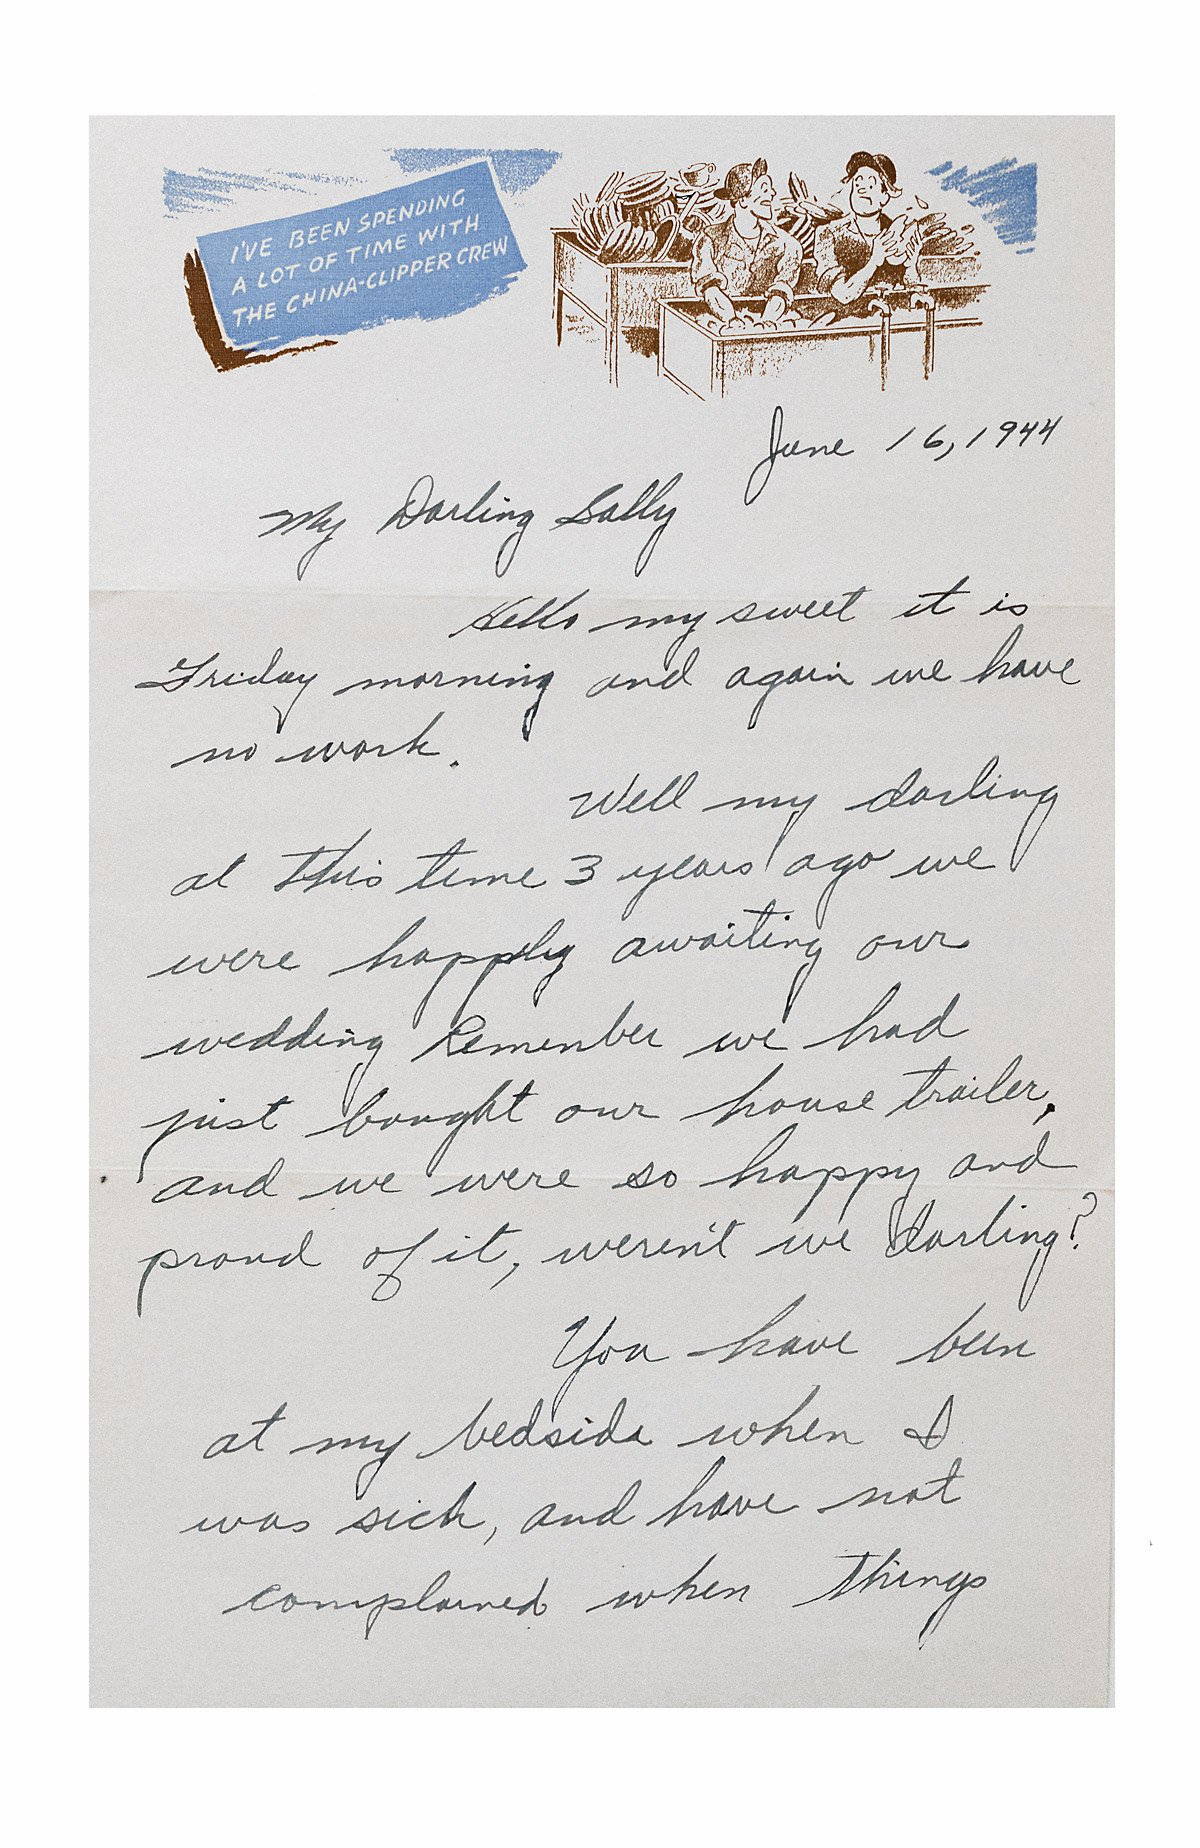 I'VE BEEN SPENDING
A LOT OF TIME WITH
THE CHINA-CLIPPER CREW
June 16, 1944
My Darling Sally
Hello my sweet it is
Friday morning and again we have
no work.
Well my darling
at this time 3 years ago we
were happily awaiting our
wedding Remember we had
just bought our house trailer,
and we were so happy and
proud of it, weren't we darling?
You have been
at my bedside when I
was sick, and have not
complained when things